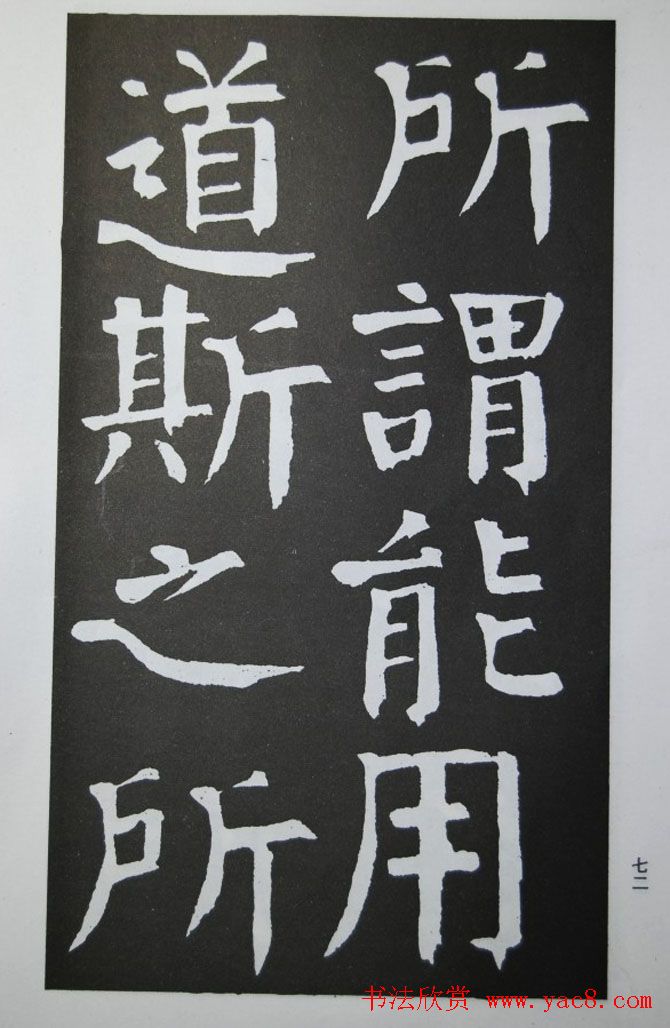 所謂能用
道斯之所
七二
书法欣赏 www.yac8.com